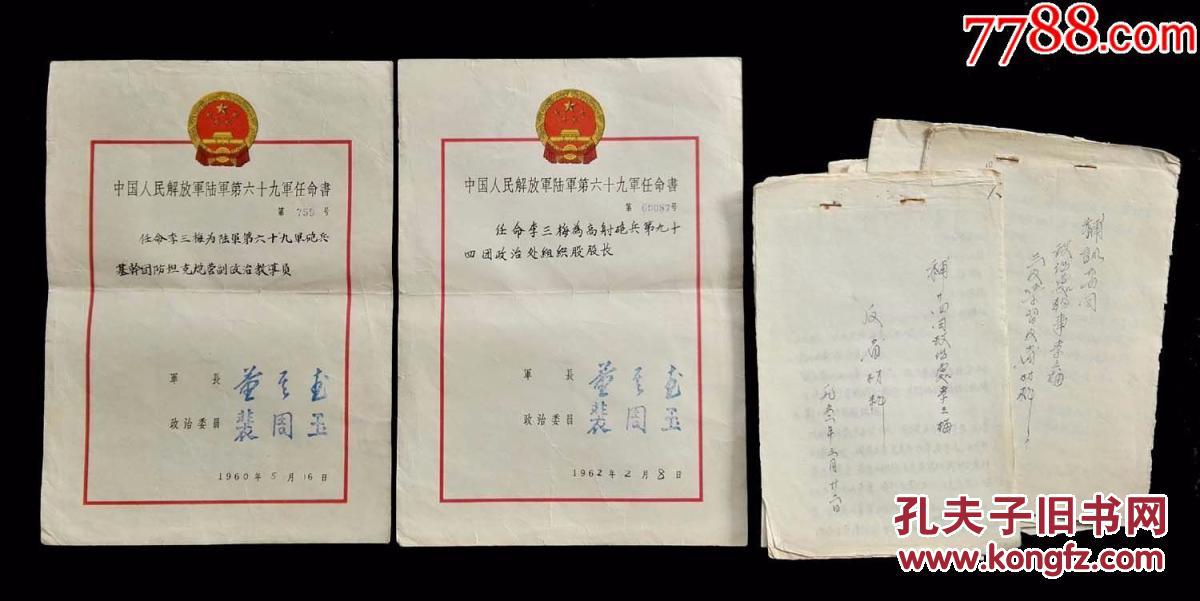 7788.com
中国人民解放軍陆軍第六十九軍任命書
第 759 号
任命李三梅为陆軍第六十九軍砲兵
基幹团防坦克炮营副政治教导員
軍 長 董天玉
政治委員 裴周玉
1960年5月16日
中国人民解放軍陆軍第六十九軍任命書
第 00087号
任命李三梅為高射砲兵第九十
四团政治处組织股股长
軍 長 董天玉
政治委員 裴周玉
1962年2月8日
政治处李三梅
反省材料
孔夫子旧书网
www.kongfz.com